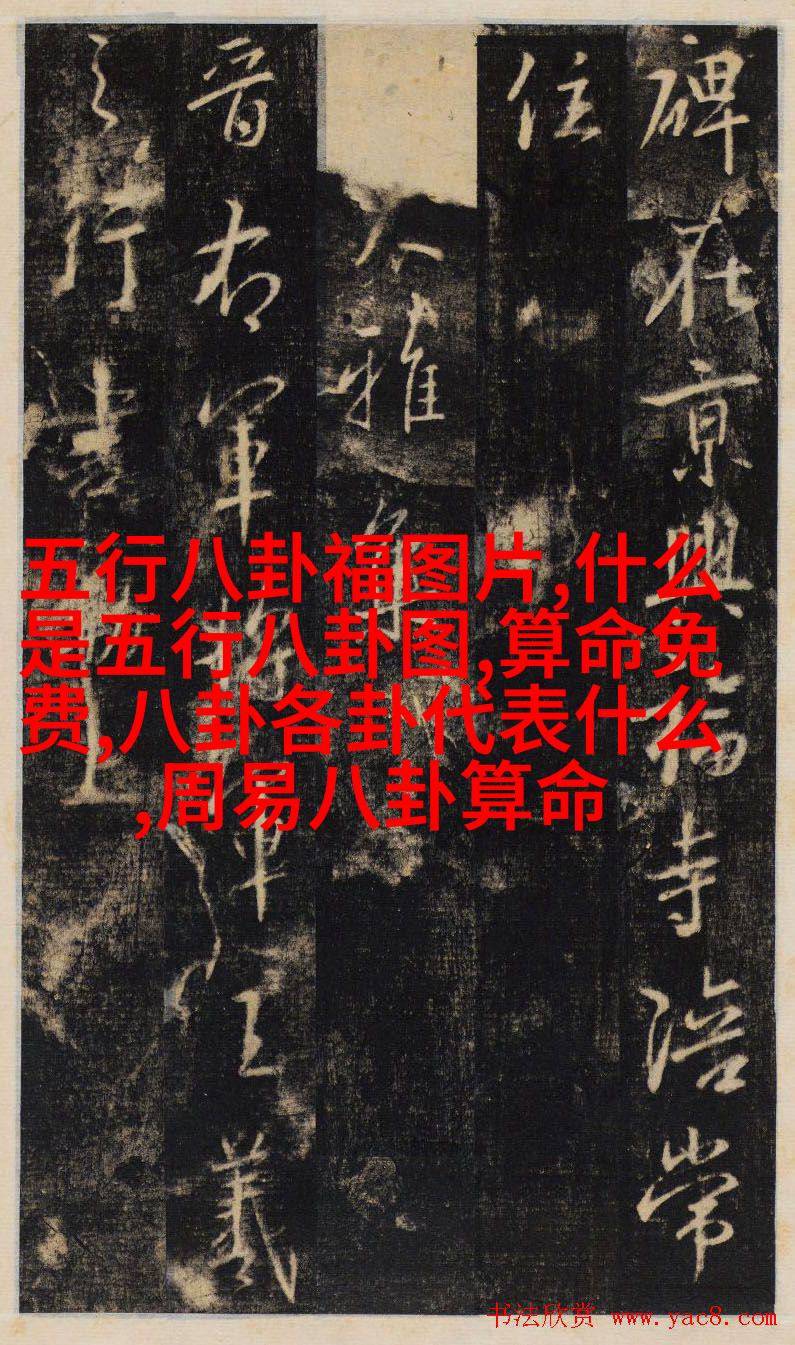 碑在京興福寺陪常
住
大雅集
晋右軍將軍王羲
之行書上
五行八卦福图片,什么
是五行八卦图,算命免
费,八卦各卦代表什么
,周易八卦算命
书法欣赏 www.yac8.com